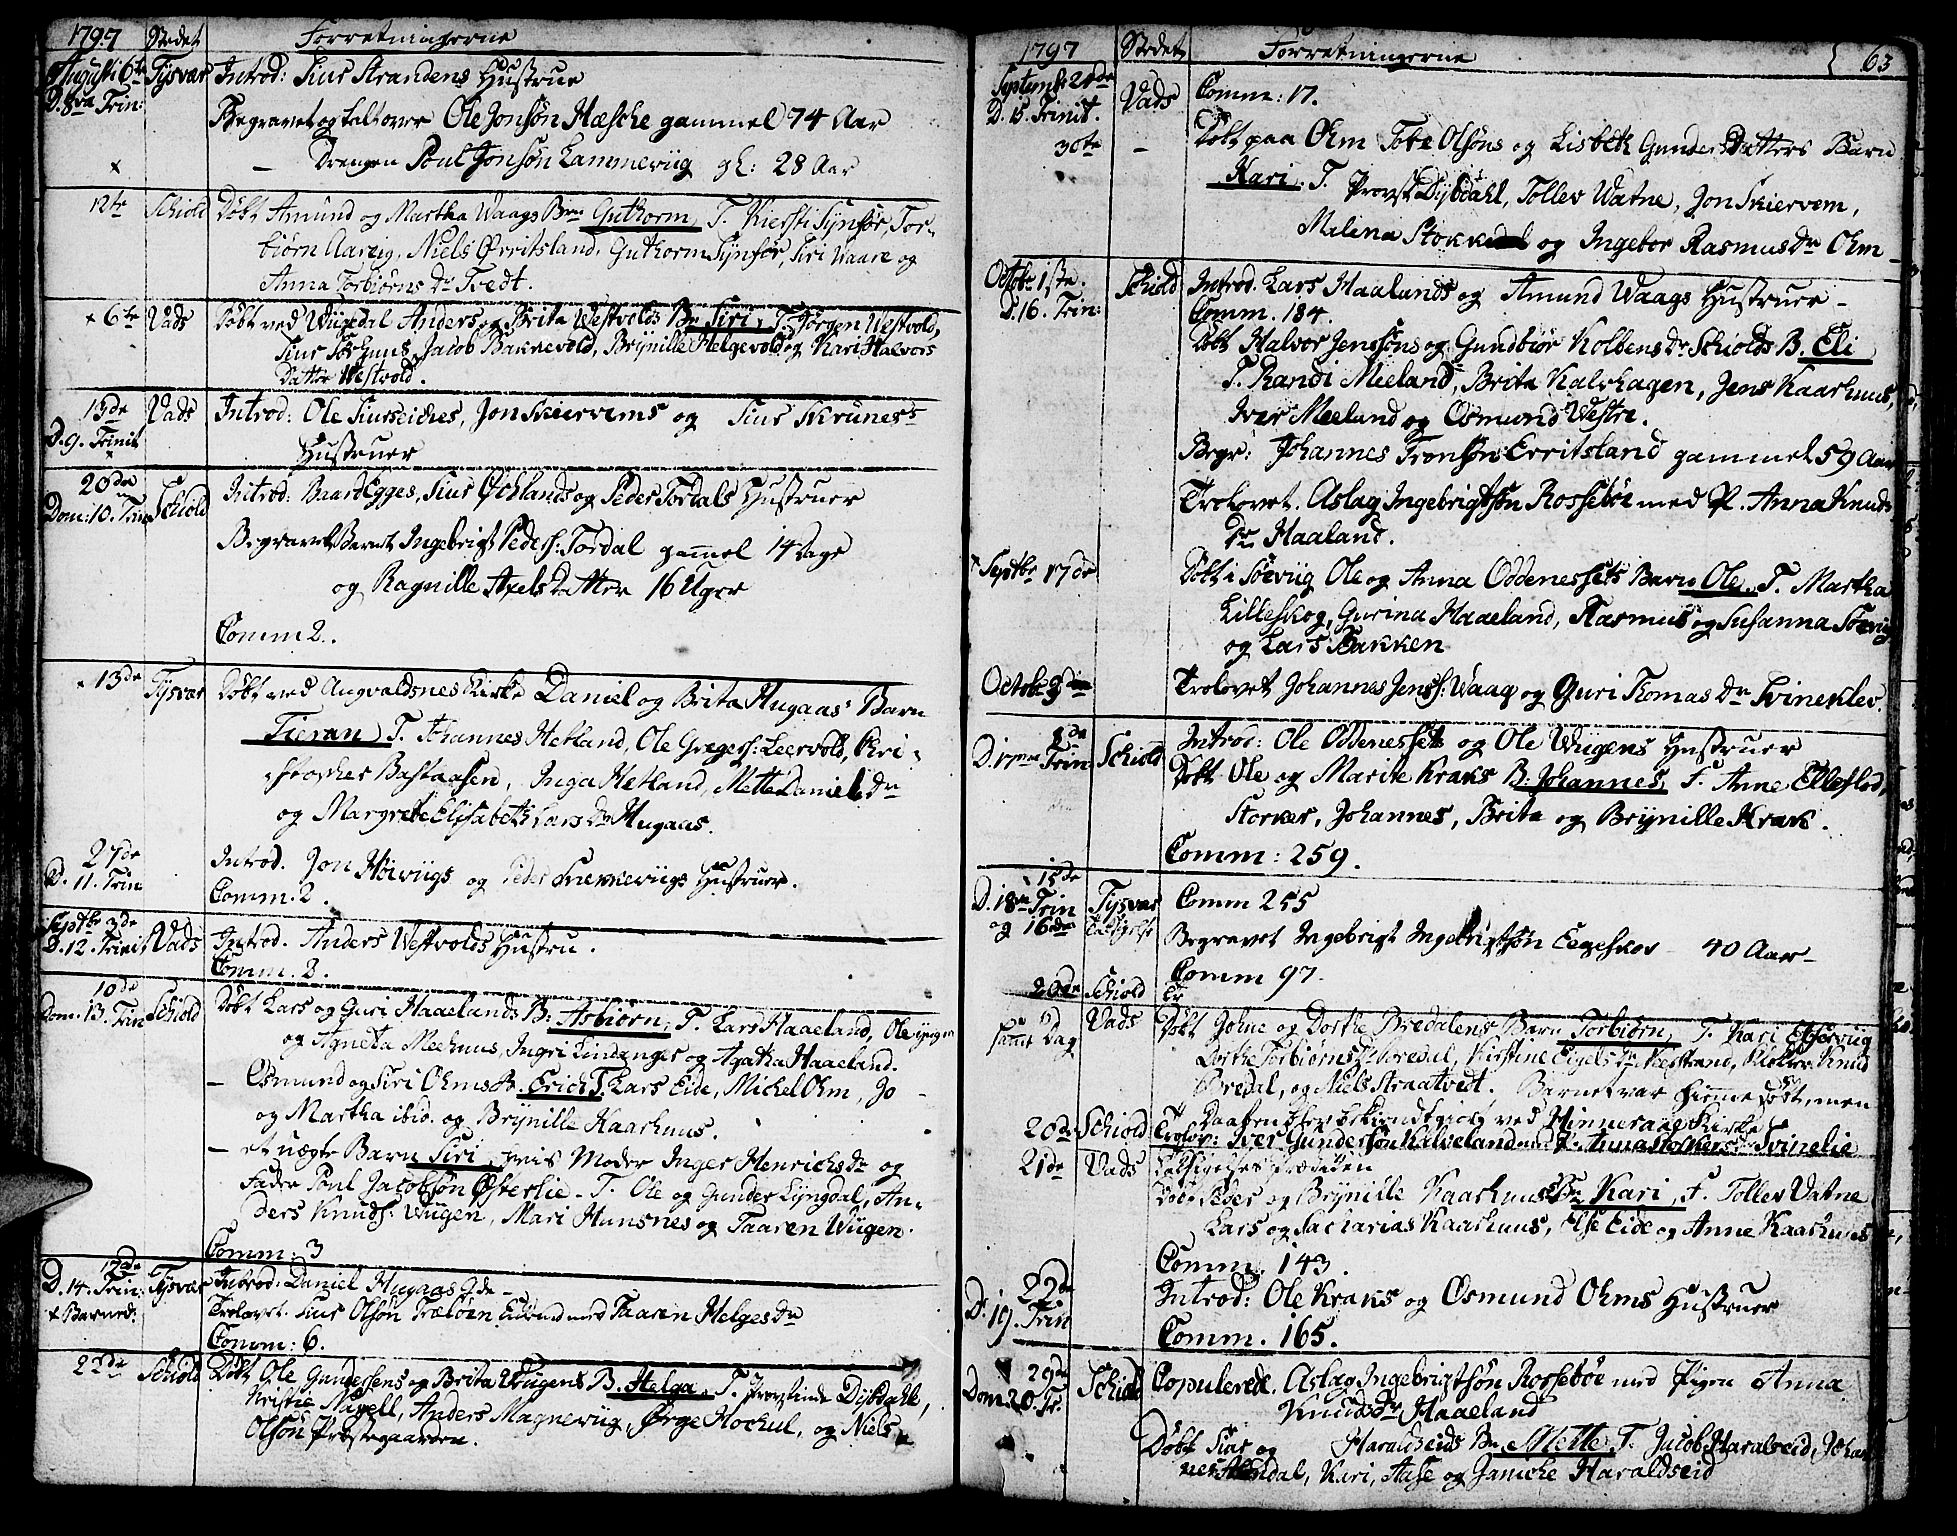 1797 Stedet Forretningerne
Augusti 6te Tysvær Introd: Siur Strandens Hustrue
D. 8va Trin: Begravet og talt over Ole Jonsøn Hæsche gammel 74 Aar
× – Drengen Poul Jonsøn Lammeviig gl: 28 Aar
12te Schiold Døbt Amund og Martha Waags Brn Guthorm, T. Kiersti Synfør, Tor-
biørn Aarvig, Niels Ørritsland, Guthorm Synfør, Siri Waare og
Anna Torbiørns Dr Tvedt.
× 6te Vads Døbt ved Wiigedal Anders og Brita Westvolds Bn Siri, T. Jørgen Westvold,
Siur Jacob Bakkevold, Brynille Helgevold og Kari Halvors
Datter Westvold.
13de Vads Introd: Ole Siurseides, Jon Skiervems og Siur Skrunes
D. 9. Trinit
× Hustruer
20de Schiold Introd: Baard Egges, Siur Øchlands og Peder Tordals Hustruer
Dom: 10. Trin Begravet Barnet Ingebrigt Peders: Tordal gammel 14 Dage
og Ragnille Axels Datter 16 Uger
Comm 2.
× 13de Tysvær Døbt ved Augvaldsnes Kirke Daniel og Brita Hugaas's Barn
Sieran, T. Johannes Hetland, Ole Gregers: Leervold, Kri-
stopher Bastaasen, Inga Hetland, Mette Daniels Dr
og Margrete Elisabeth Lars Dr Hugaas.
27de Introd. Jon Høiviigs og Peder Snekkeviigs Hustruer.
D. 11. Trin Comm. 2.
Septbr 3de
D. 12. Trinit Vads Introd. Anders Westvolds Hustru.
Comm. 3.
10de
Dom. 13. Trin Schiold Døbt Lars og Guri Haaelands B: Asbiørn, T. Lars Haaeland, Ole
og Agneta Meehuus, Ingri Lindanger og Agatha Haaeland.
– Osmund og Siri Ohms B. Erich T. Lars Eide, Michel Ohm, Jo –
og Martha ibid. og Brynille Kaarhuus.
– et uægte Barn Siri, hvis Moder Inger Henrichs Dr og
Fader Poul Jacobsøn Østerlie – T. Ole og Gunder Lyngdal, An-
ders Knuds: Wiigen, Mari Hunsnes og Taaren Wiigen.
Comm: 3
17de
D. 14. Trin: Tysvær Introd: Daniel Hugaas Qde –
× Barned: Trolovet. Siur Olsøn Træløen Eidend med Taaren Helges Dr
Comm: 6.
23de Schiold Døbt Ole Gundersens og Brita Wiigens B. Helga, T. Provstinde Dybdahl,
Kristie Nagell, Anders Magneviig, Ørge Hockul, og Niels
Olsøn Præstegaarden.
1797 Stedet Forretningerne 63
Septembr 24de Vads Comm: 17.
D. 15. Trinit.
30te – Døbt paa Øhm Tobe Olsøns og Lisbeth Gunders Datters Barn
Kari. T. Provst Dybdahl, Tollev Watne, Jon Skiervem,
Milina Stokke og Ingebor Rasmus Dr Ohm –
Octbr 1ste. Schiold Introd. Lars Haalands og Amund Waags Hustruer –
D. 16. Trin: Comm. 184.
Døbt Halvor Jenssøns og Gundbiør Kolbens Dr Schiolds B. Eli
T. Randi Meeland, Brita Kalvhagen, Jens Kaarhuus,
Iver Meeland og Osmund Westre.
Begr: Johannes Tronsøn Erritsland gammel 59 Aar
Trolovet. Aslag Ingebrigtsøn Rossebøe med P. Anna Knuds
Dr Haaland.
× Septbr 17de Døbt i Søeviig Ole og Anna Oddenessets Barn Ole, T. Martha
Lilleskog, Gurina Haaeland, Rasmus og Susanna Søevig
og Lars Bakken
Octobr 3die Trolovet Johannes Jenss: Waag og Guri Thomas Dr Svineklev.
8de
D. 17nn Trin Schiold Introd: Ole Oddenessets og Ole Wiigens Hustruer
Døbt Ole og Marite Kraks B: Johannes, T. Anne Elleflod,
Storker, Johannes, Brita og Brynille Krak.
Comm: 259.
15de
D. 18n Trin Tysvær Comm 255
og 16den Begravet Ingebrigt Ingebrigtsøn Eegeskov – 40 Aar –
Comm 97.
20de Schiold
samme Dag Vads Døbt Johne og Dorthe Bredalens Barn Torbiørn, T. Kari
Dorthe Torbiørns Dr Bredal, Kirstine Eigels Dr Klokker Knud
Bredal, og Niels Straatvedt. Barnet var hiemmedøbt, men
Daaben blev bekiendtgiort ved Hinneraae Kirke
20de Schiold Trolov: Iver Gundersøn Kalveland med P. Anna Storkers Dr Svinelie
21de Vads
Døbt Peder og Brynille Kaarhuus's Bn Kari, T. Tollev Vatne
Lars og Sacharias Kaarhuus, Else Eide og Anne Kaarhuus
Comm. 143.
22de Introd: Ole Kraks og Osmund Ohms Hustruer
D. 19. Trin Comm. 165.
29de
Dom 20. Tr. Schiold Copulerede. Aslag Ingebrigtsøn Rossebøe med Pigen Anna
Knuds Dr Haaeland
Døbt Siur og Haraldseids Bn Mette, T. Jacob Haralseid, Johan-
nes Kari, Aase og Janicke Haraldseid